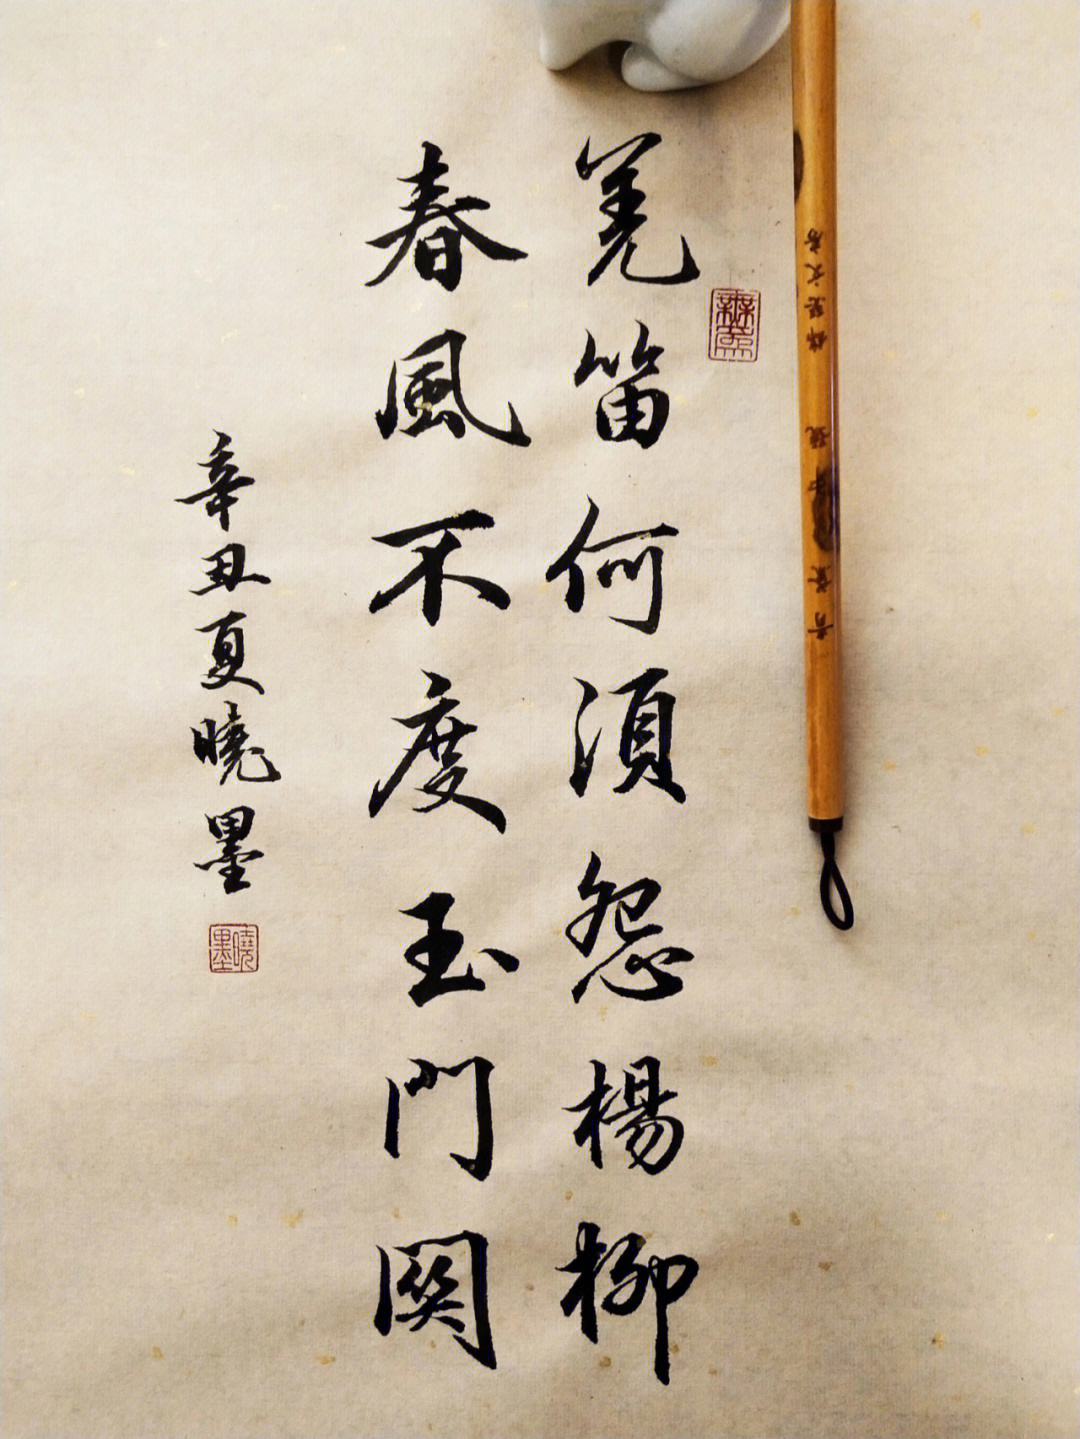 羌笛何須怨楊柳
春風不度玉門関
辛丑夏曉墨
曉墨